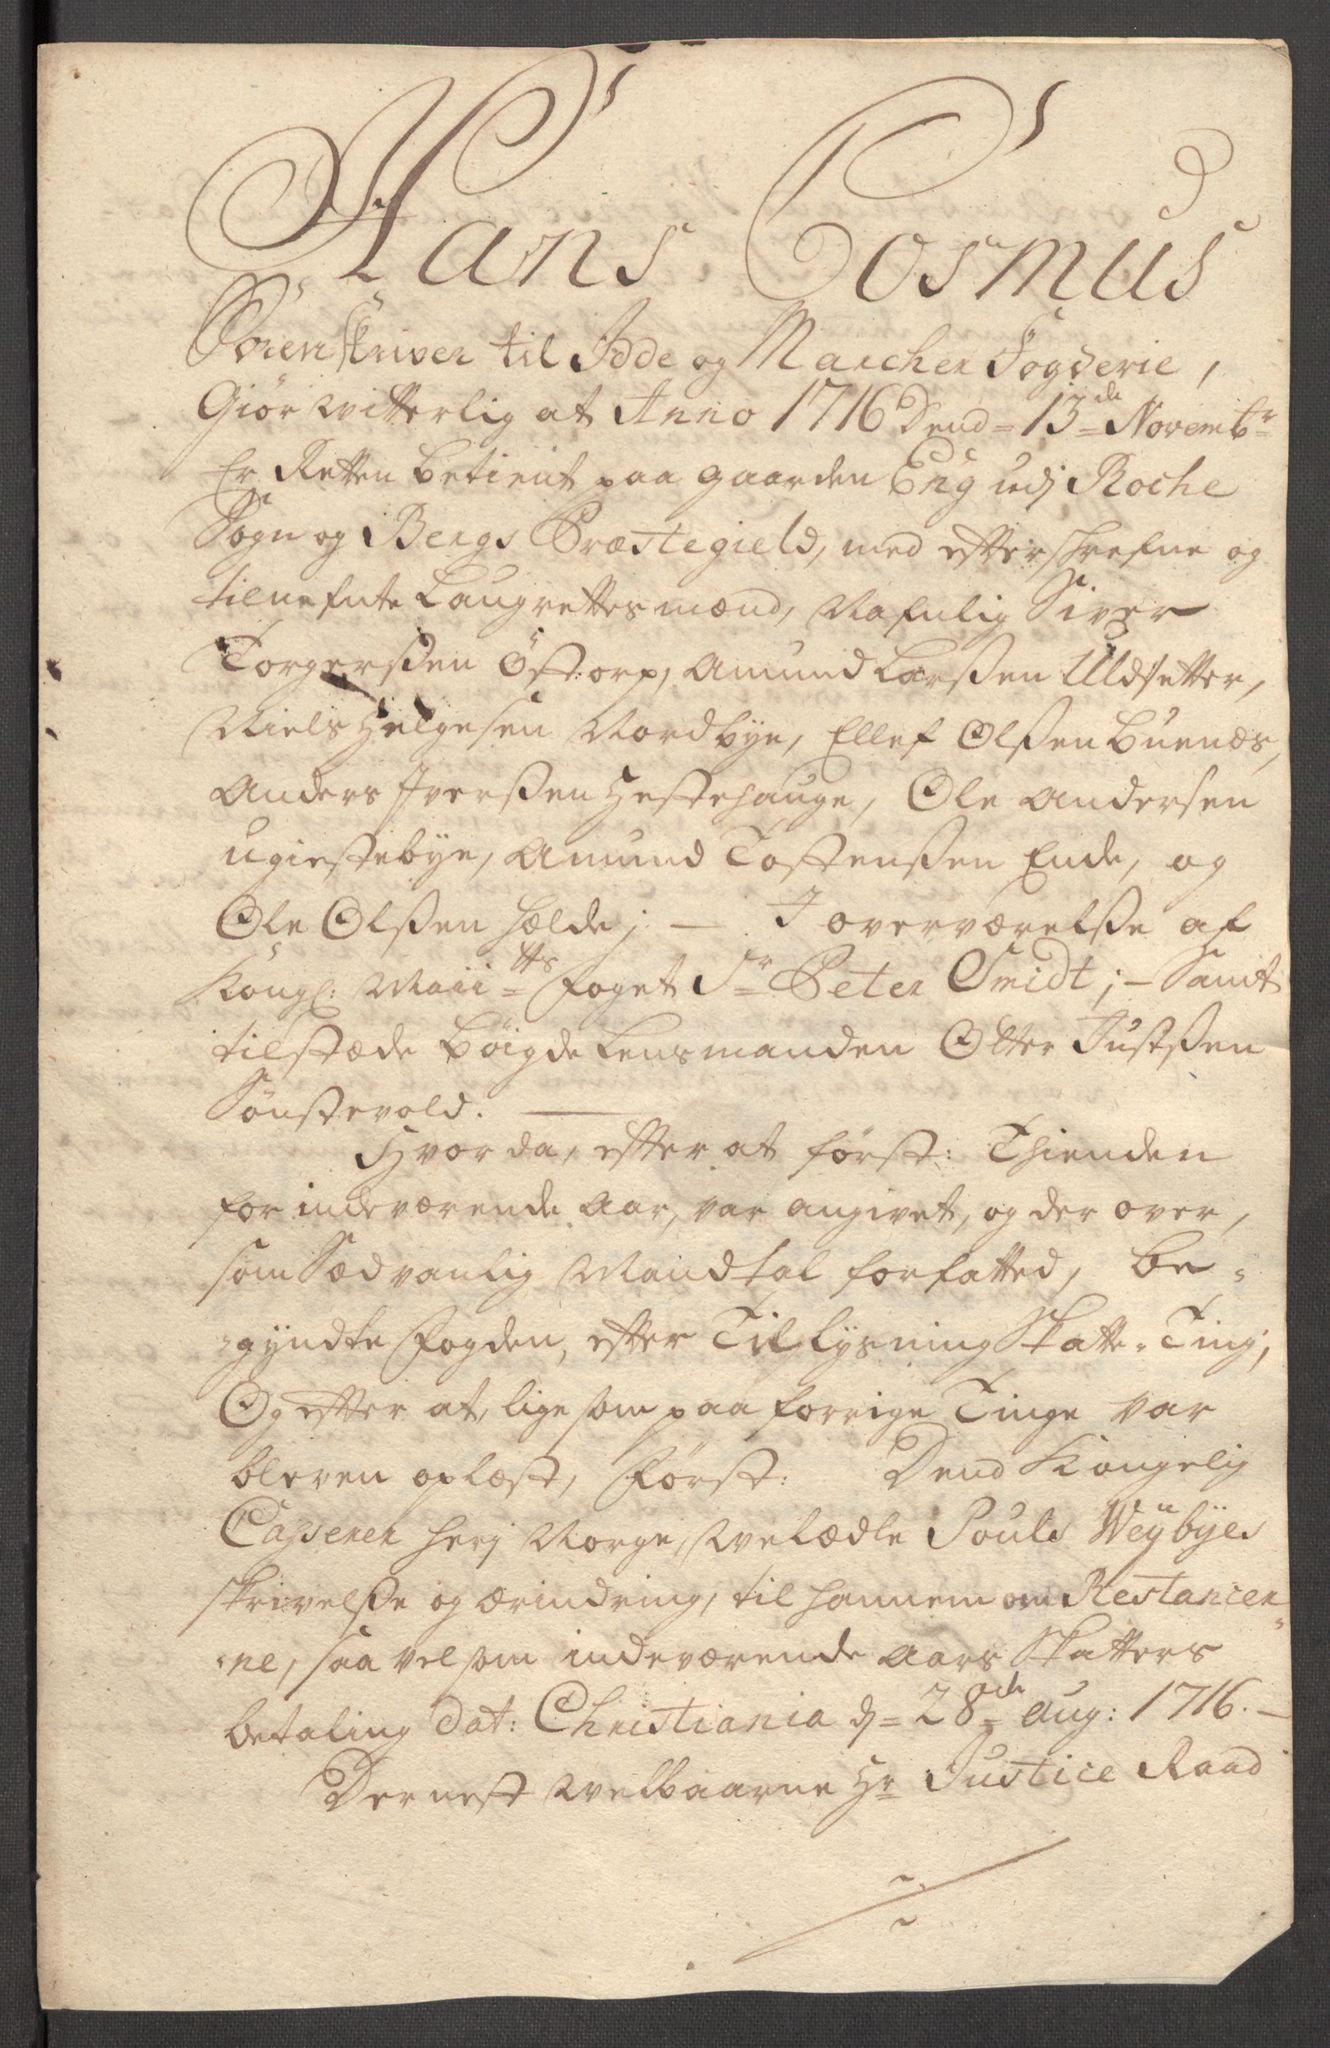 Hans Cosmus
Sorenskriver til Idde og Marcher Fogderie,
Giør Witterlig at Anno 1716 Dend = 13de Novembr
Er Retten betient paa gaarden Eng udj Roche
Sogn og Bergs Præstegield, med efterschrefne og
tilnefnte Laugrettesmænd, Nafnlig Siver
Torgerssen Östorp, Amund Larssen Uldsetter,
Niels Helgesen Nordbye, Ellef Olssen Buenæs,
Anders Iverssen Hestehauge, Ole Andersen
Ugiestebye, Amund Tostenssen Ende, og
Ole Olssen Hælde; — I overværelsse af
Kongl: Maiitts Foget Sr Peter Smidt; — Samt
tilstæde Böigde Lensmanden Otter Justssen
Sönstevold. —
Hvor da, efter at først: Thienden
for indeværende Aar, var angivet, og der over,
som Sædvanlig Mandtal forfatted, be=
=gyndte Fogden, efter Tillysning Skatte=Ting;
Og efter at, lige som paa forrige Tinge var
bleven oplæst, Först: Dend Kongelig
Casserer herj Norge, Welædle Pouls Weÿbÿes
skrivelsse og erindring, til hannem om Restancer=
=ne, saa vel som indeværende Aars Skatters
betaling Dat: Christiania d = 28de Aug: 1716. —
Dernest Welbaarne Hr Justice Raad